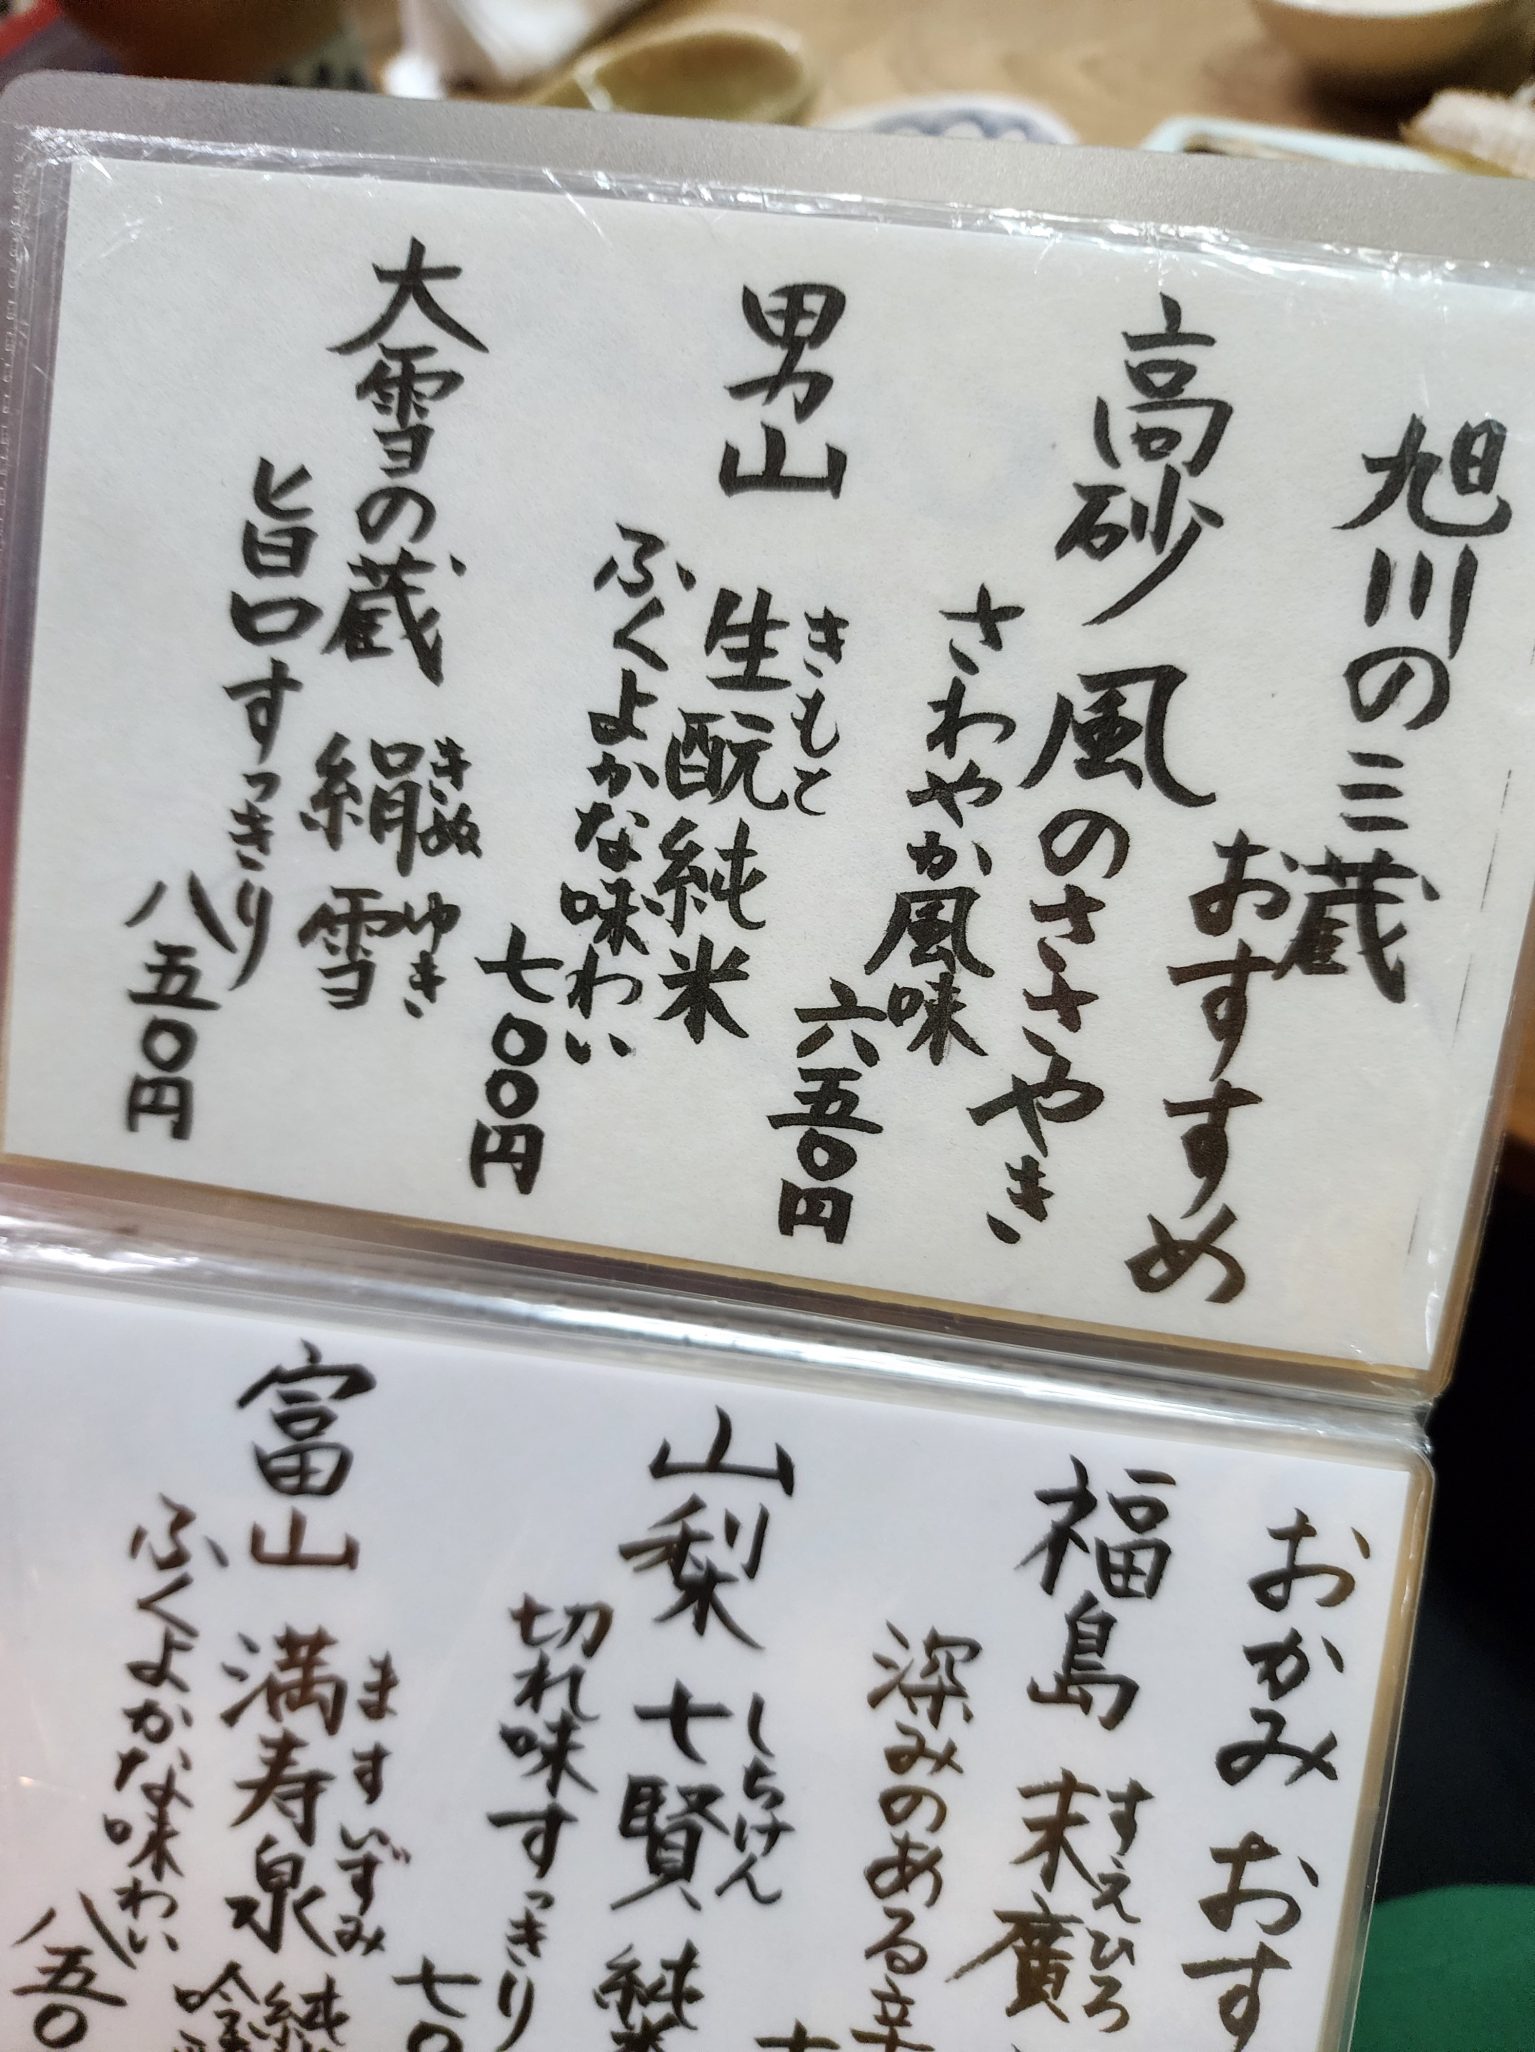 旭川の三蔵
おすすめ
高砂 風のささやき
さわやか風味
六五〇円
きもと
男山 生酛純米
ふくよかな味わい
七〇〇円
きぬ ゆき
大雪の蔵 絹雪
旨口すっきり
八五〇円
おかみ おす
すえひろ
福島 末廣
深みのある辛
しちけん
山梨 七賢 純米
切れ味すっきり
七〇
ますいずみ
富山 満寿泉 純
吟
ふくよかな味わい
八五〇